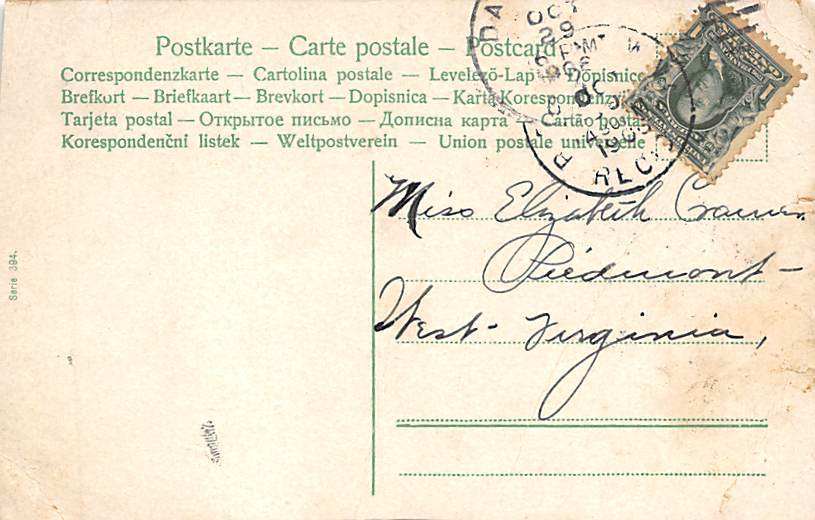 Postkarte — Carte postale — Postcard
Correspondenzkarte — Cartolina postale — Levelező-Lap — Dopisnice
Brefkort — Briefkaart — Brevkort — Dopisnica — Karta Korespondenzyjna
Tarjeta postal — Открытое письмо — Дописна карта — Cartão postal
Korespondenční listek — Weltpostverein — Union postale universelle
OCT
29
OCT
1906
Miss Elizabeth
Piedmont —
West-Virginia,
Serie 394.